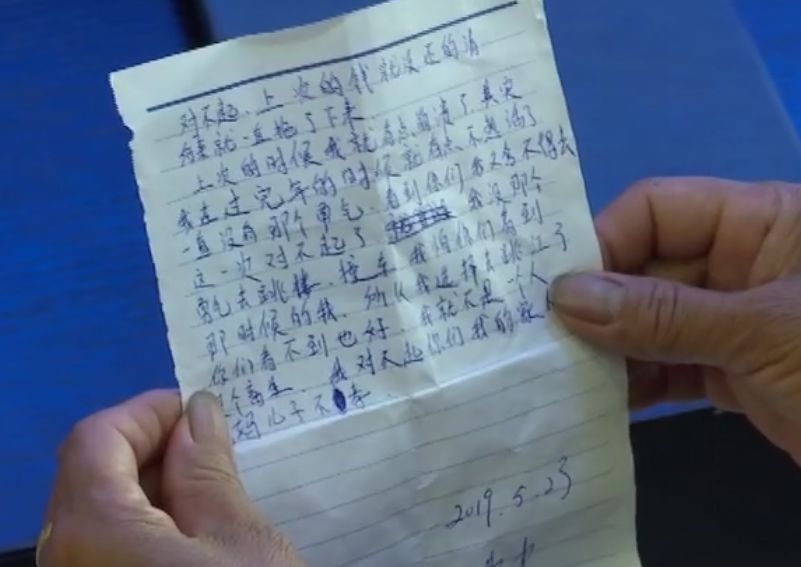 对不起、上次的钱就没还的清
结束就一直拖了下来
上次的时候我就有点崩溃了其实
我在过完年的时候就有点不想活了
一直没有那个勇气、看到你们我又舍不得去
这一次对不起了 我没那个
勇气去跳楼、撞车、我怕你们看到
那时候的我、所以我选择去跳江了
你们看不到也好、我就不是一个人
个畜生、我对不起你们我的家人
妈儿子不孝.
2019.5.23